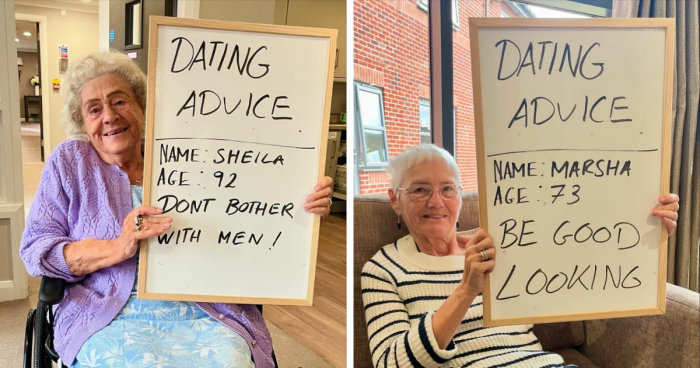 DATING
ADVICE.
NAME: SHEILA
AGE: 92
DONT BOTHER
WITH MEN!
DATING
ADVICE.
NAME: MARSHA
AGE: 73
BE GOOD
LOOKING